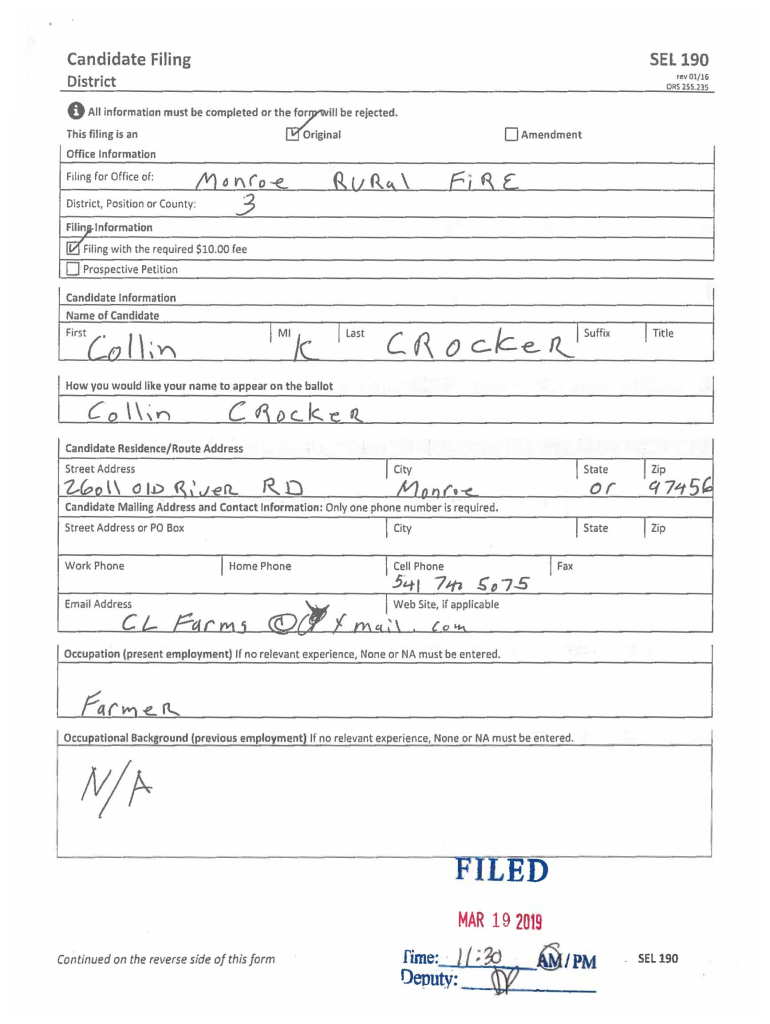 Candidate Filing
SEL 190
District
rev 01/16
ORS 255.235
All information must be completed or the form will be rejected.
This filing is an
Original
Amendment
Office Information
Filing for Office of: Monroe RURal FiRE
District, Position or County: 3
Filing Information
Filing with the required $10.00 fee
Prospective Petition
Candidate Information
Name of Candidate
First MI Last Suffix Title
Collin K CROckeR
How you would like your name to appear on the ballot
Collin CROckeR
Candidate Residence/Route Address
Street Address City State Zip
26011 OLD RiveR RD Monroe or 97456
Candidate Mailing Address and Contact Information: Only one phone number is required.
Street Address or PO Box City State Zip
Work Phone Home Phone Cell Phone Fax
541 740 5075
Email Address Web Site, if applicable
CL Farms @ mail.com
Occupation (present employment) If no relevant experience, None or NA must be entered.
FarmeR
Occupational Background (previous employment) If no relevant experience, None or NA must be entered.
N/A
FILED
MAR 19 2019
Continued on the reverse side of this form
Time: 11:30 AM/PM
SEL 190
Deputy: